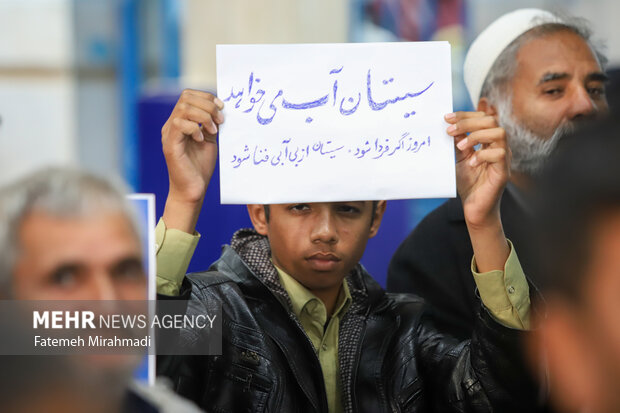 سیستان آب می خواهد
امروز اگر فردا شود، سیستان از بی آبی فنا شود
MEHR NEWS AGENCY
Fatemeh Mirahmadi